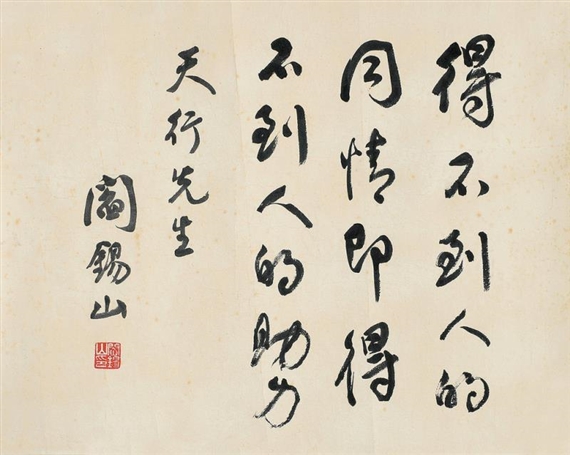 得不到人的
同情即得
不到人的助力
天行先生
閻錫山